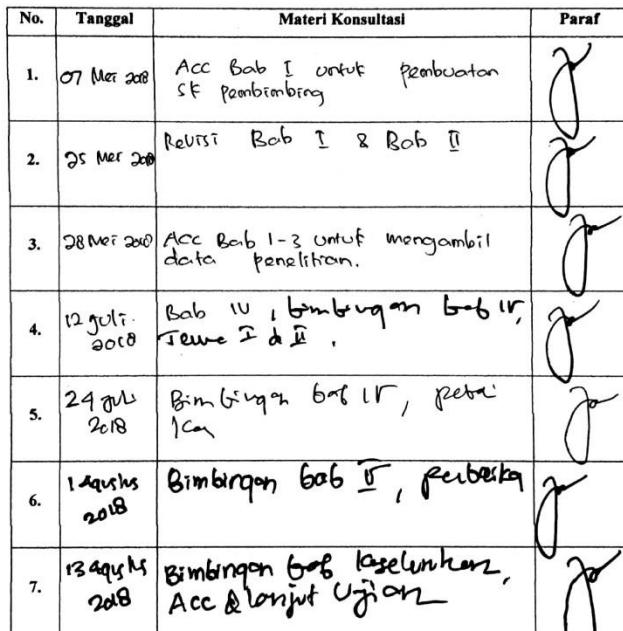 No. Tanggal Materi Konsultasi Paraf
1. 07 Mei 2018 Acc Bab I untuk pembuatan
SK pembimbing
2. 25 Mei 2018 Revisi Bab I & Bab II
3. 28 Mei 2018 Acc Bab 1-3 untuk mengambil
data penelitian.
4. 12 Juli 2018 Bab IV, bimbingan bab IV,
I & II.
5. 24 Juli 2018 Bimbingan bab IV,
6. 1 Agustus 2018 Bimbingan bab V,
7. 13 Agustus 2018 Bimbingan bab keseluruhan,
Acc & lanjut Ujian